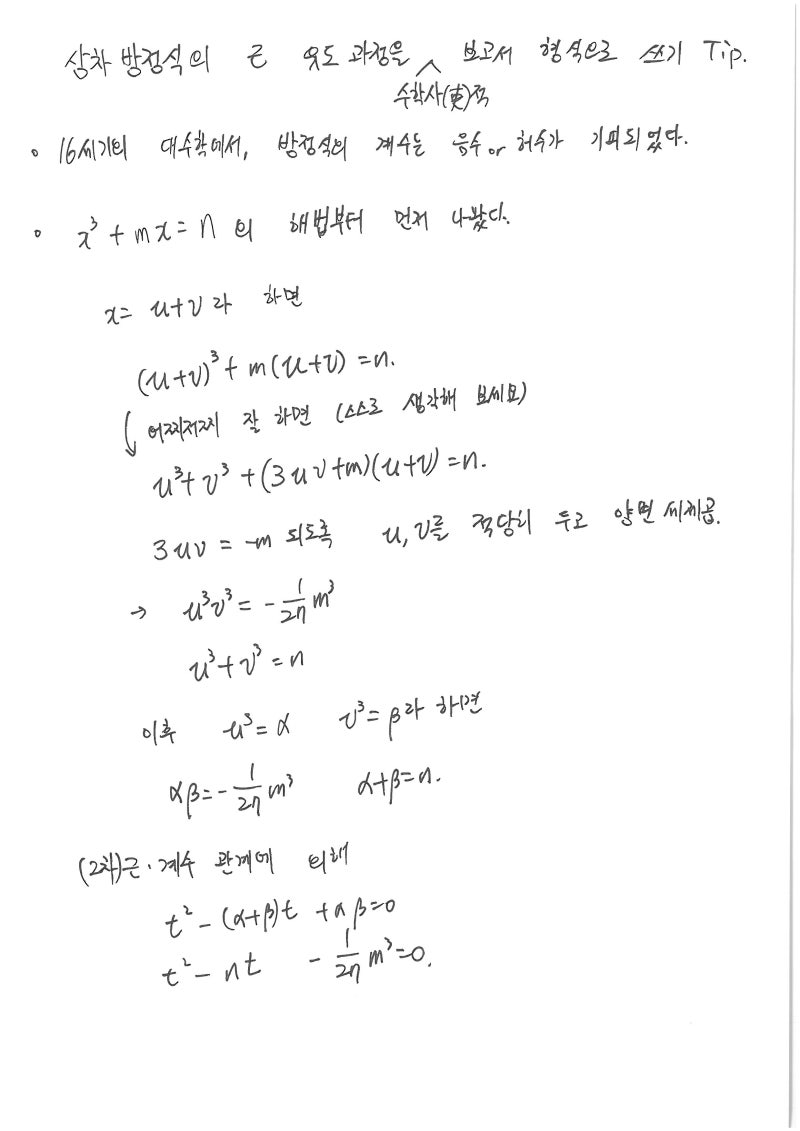 삼차 방정식의 근 유도 과정을 ∧ 보고서 형식으로 쓰기 Tip.
수학사(史)적
◦ 16세기의 대수학에서, 방정식의 계수는 음수 or 허수가 기피되었다.
◦ x³ + mx = n 의 해법부터 먼저 나왔다.
x = u+v 라 하면
(u+v)³ + m(u+v) = n.
어찌저찌 잘 하면 (스스로 생각해 보세요)
u³+v³ + (3uv+m)(u+v) = n.
3uv = -m 되도록 u, v를 적당히 두고 양변 세제곱.
→ u³v³ = -1/27 m³
u³+v³ = n
이후 u³ = α v³ = β라 하면
αβ = -1/27 m³ α+β = n.
(2차)근·계수 관계에 의해
t² - (α+β)t + αβ = 0
t² - nt - 1/27 m³ = 0.